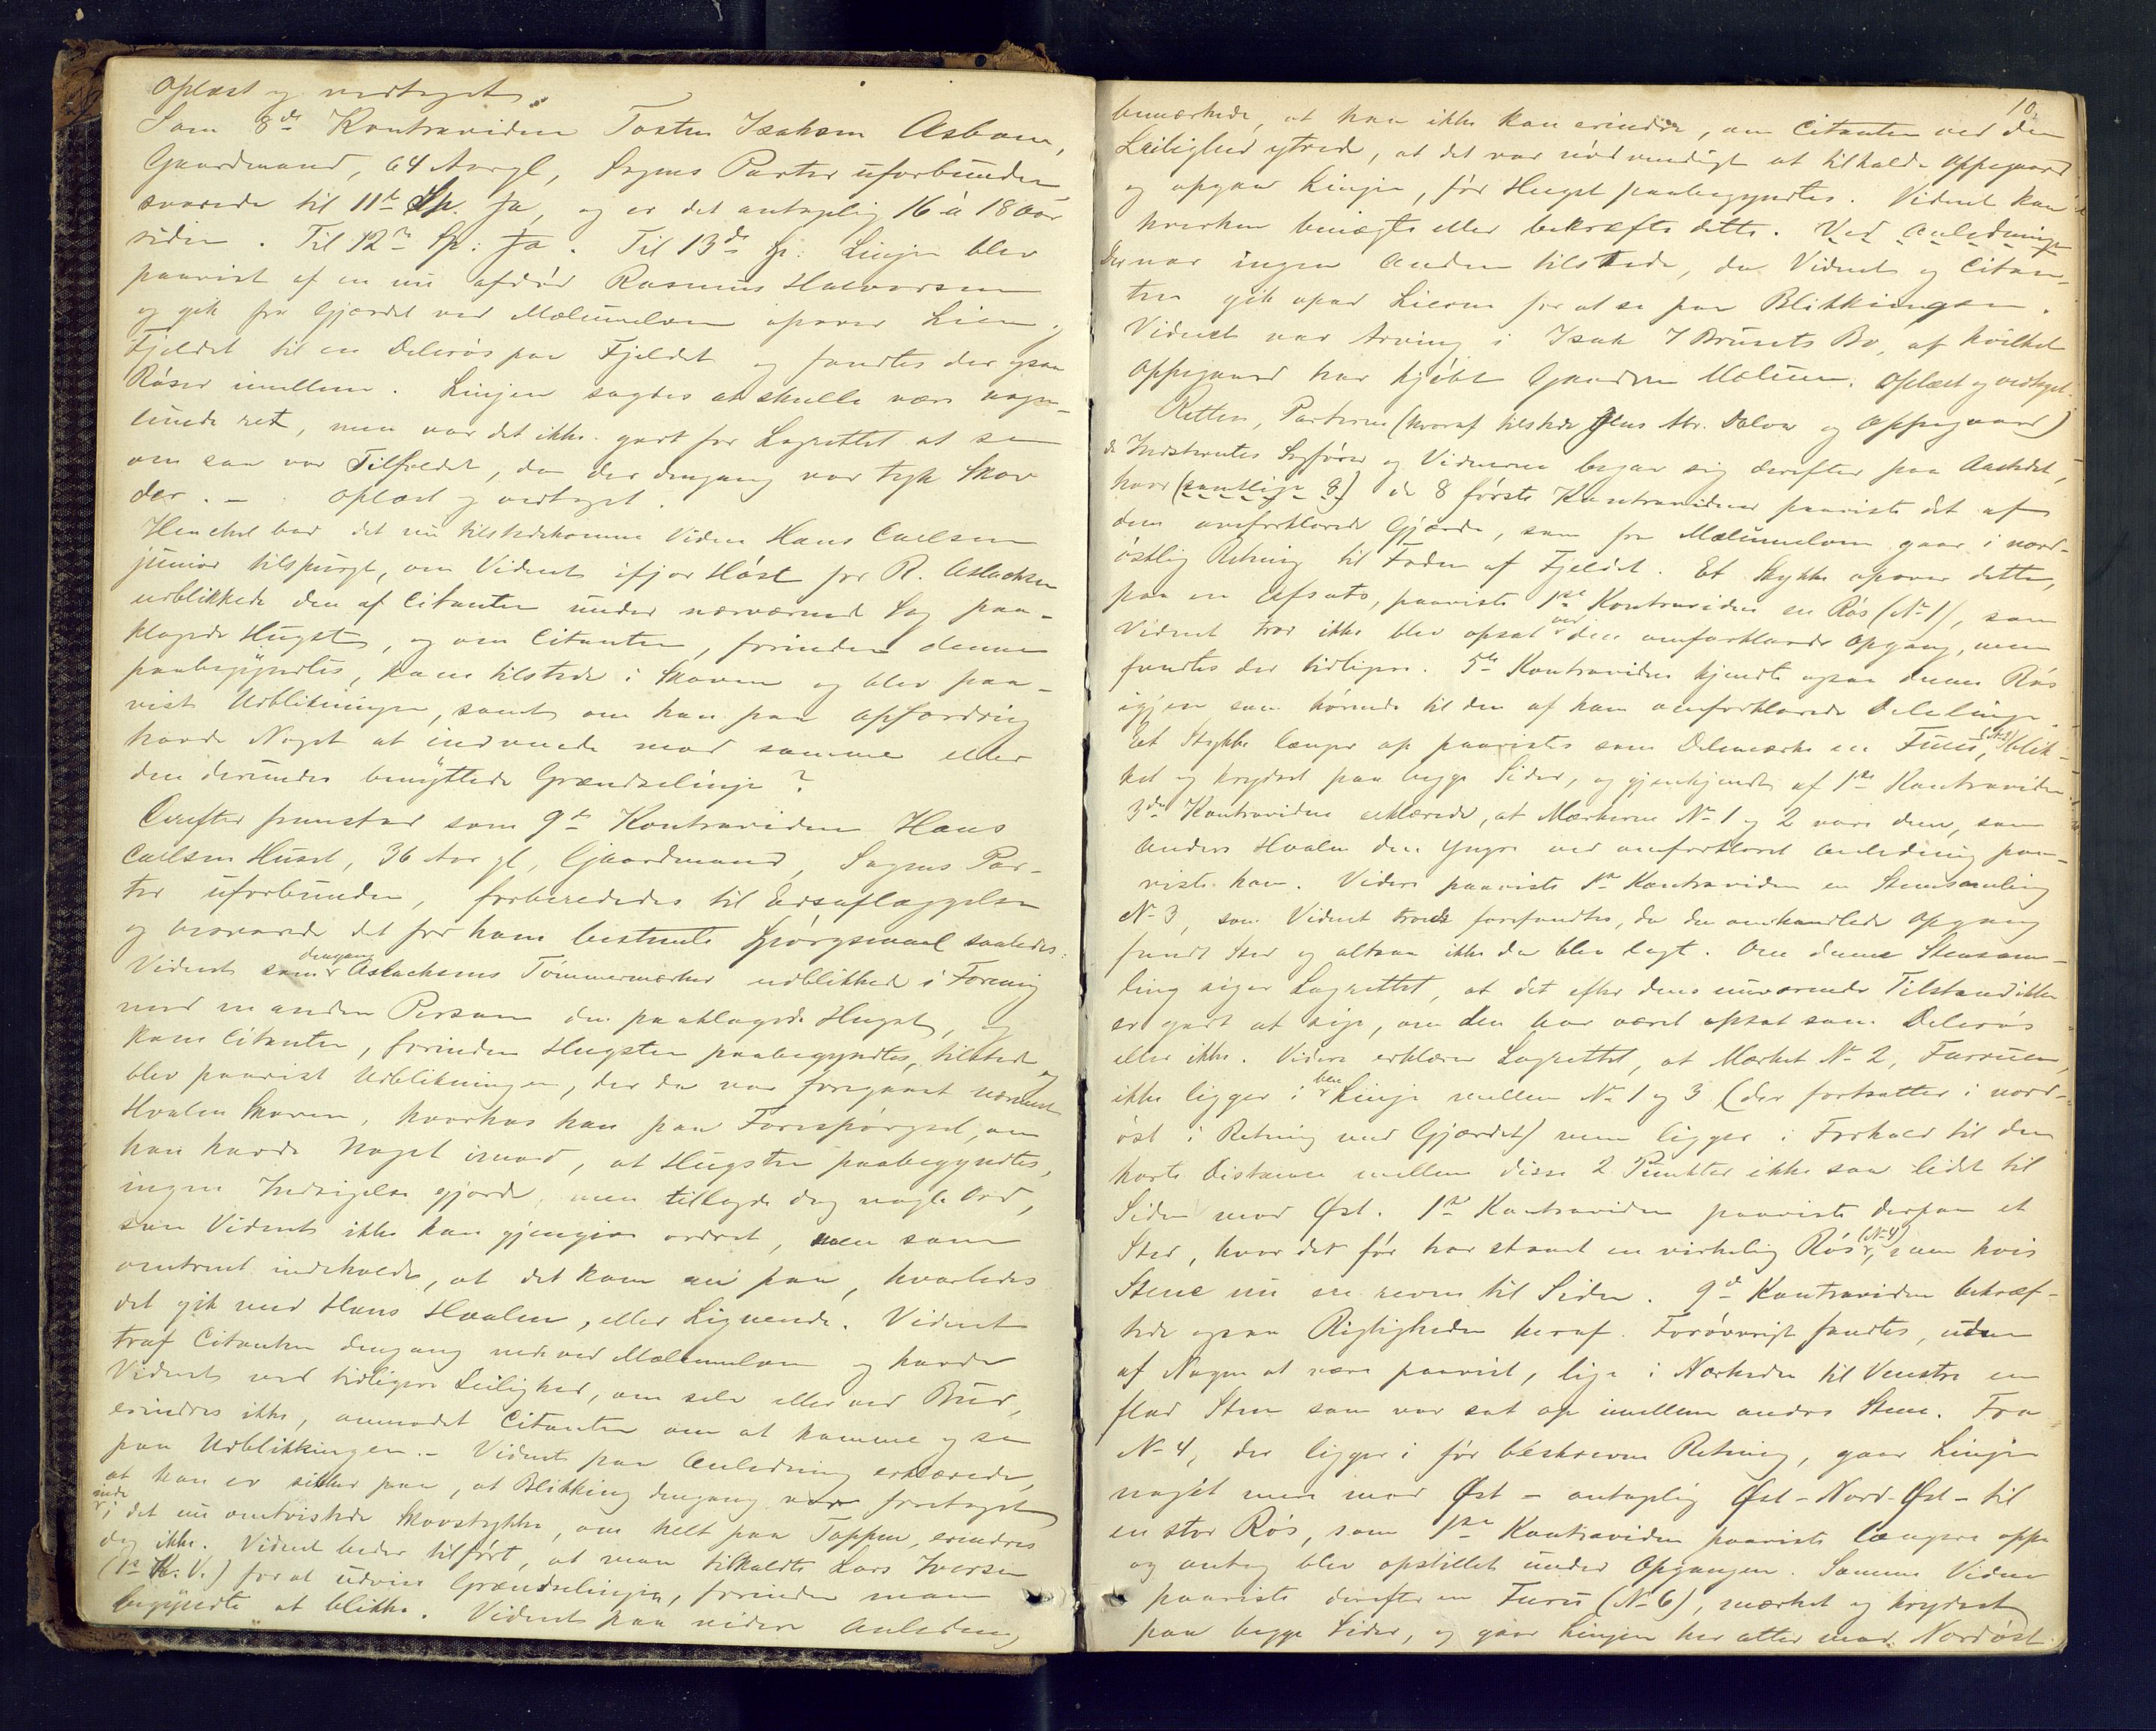 Oplæst og vedtaget.
Som 8de Kontravidne Tosten Isaksen Asbom,
Gaardmand, 64 Aar gl, Sagens Parter uforbunden
svarede til 11te Sp. Ja, og er det antagelig 16 à 18 Aar
siden. Til 12te Sp: Ja. Til 13de Sp: Linjen blev
paavist af en nu afdød Rasmus Halvorsen
og gik fra Gjærdet ved Mælumelven opover Lien og
Fjeldet til en Delerøs paa Fjeldet og fandtes der ogsaa
Røser imellem. Linjen sagdes at skulle være nogen-
lunde ret, men var det ikke godt for Lagrettet at se
om saa var Tilfældet, da der dengang var tyk Skov
der. — Oplæst og vedtaget.
Henchel bad det nu tilstedekomne Vidne Hans Carlsen
junior tilspurgt, om Vidnet ifjor Høst for R. Aslachsen
udblikkede den af Citanten under nærværende Sag paa-
klagede Hugst, og om Citanten, forinden denne
paabegyndtes, kom tilstede i Skoven og blev paa-
vist Udblikningen, samt om han paa Opfordring
havde Noget at indvende mod samme eller
den derunder benyttede Grændselinje?
Derefter fremstod som 9de Kontravidne Hans
Carlsen Huset, 36 Aar gl, Gaardmand, Sagens Par-
ter uforbunden, forberededes til Edsaflæggelse
og besvarede det for ham bestemte Spørgsmaal saaledes:
Vidnet som dengang Aslachsens Tømmermærker udblikkede i Forening
med en anden Person den paaklagede Hugst, og
kom Citanten, forinden Hugsten paabegyndtes, tilstede og
blev paavist Udblikningen, der da var foregaaet nærmest
Hvalen Skoven, hvorhos han paa Forespørgsel, om
han havde Noget imod, at Hugsten paabegyndtes,
ingen Indsigelse gjorde, men tillagde dog nogle Ord,
som Vidnet ikke kan gjengive ordret, men som
omtrent indeholdt, at det kom an paa, hvorledes
det gik med Hans Hvalen, eller Lignende. Vidnet
traf Citanten dengang nede ved Mælumelven og havde
Vidnet ved tidligere Leilighed, om selv eller ved Bud,
erindres ikke, anmodet Citanten om at komme og se
paa Udblikkingen. – Vidnet paa Anledning erklærede,
at han er sikker paa, at Blikking dengang var foretaget
inde i det nu omtvistede Skovstykke, om helt paa Toppen, erindres
dog ikke. Vidnet beder tilført, at man tilkaldte Lars Iversen
(1te K. V.) for at udvise Grændselinjen, forinden man
begyndte at blikke. Vidnet paa videre Anledning
10.
bemærkede, at han ikke kan erindre, om Citanten ved den
Leilighed ytrede, at det var nødvendigt at tilkalde Oppegaard
og opgaa Linjen, før Hugst paabegyndtes. Vidnet kan
hverken benægte eller bekræfte dette. Ved Anledningen
Der var ingen Anden tilstede, da Vidnet og Citan-
ten gik opad Lierne for at se paa Blikkingen.
Vidnet var Arving i Isak Brusets Bo, af hvilket
Oppegaard har kjøbt Gaarden Mælum. Oplæst og vedtaget.
Retten, Parterne (hvoraf tilstede Jens Mr. Dolva og Oppegaard)
de Indstevntes Sagfører og Vidnerne begav sig derefter paa Aastedet,
hvor (samtlige 8) de 8 første Kontravidner paaviste det af
dem omforklarede Gjærde, som fra Mælumelven gaar i nord-
østlig Retning til Foden af Fjeldet. Et Stykke opover dette,
paa en Afsats, paaviste 1ste Kontravidne en Røs (No 1), som
Vidnet tror ikke blev opsat ved den omforklarede Opgang, men
fandtes der tidligere. 5te Kontravidne kjendte ogsaa denne Røs
igjen som hørende til den af ham omforklarede Delelinje.
Et Stykke længer op paavistes som Delemærke en Furu, (No 2) blik-
ket og krydset paa begge Sider, og gjenkjendt af 1ste Kontravidne.
3die Kontravidne erklærede, at Mærkerne No 1 og 2 vare dem, som
Anders Hvalen den yngre ved omforklaret Anledning paa-
viste ham. Videre paaviste 1ste Kontravidne en Stensamling
No 3, som Vidnet troede forefandtes, da den omhandlede Opgang
fandt Sted og altsaa ikke da blev lagt. Om denne Stensam-
ling siger Lagrettet, at det efter dens nuværende Tilstand ikke
er godt at sige, om den har været opsat som Delerøs
eller ikke. Videre erklærer Lagrettet, at Mærket No 2, Furuen,
ikke ligger i bene Linje mellem No 1 og 3 (der fortsætter i nord-
øst i Retning med Gjærdet) men ligger i Forhold til den
korte Distance mellem disse 2 Punkter ikke saa lidet til
Siden mod Øst. 1ste Kontravidne paaviste derpaa et
Sted, hvor der før har staaet en virkelig Røs (No 4), men hvis
Stene nu ere revne til Siden. 9de Kontravidne bekræf-
tede ogsaa Rigtigheden heraf. Forøvrigt fandtes, uden
af Nogen at være paavist, lige i Nærheden til Venstre en
flad Sten som var sat op imellem andre Stene. Fra
No 4, der ligger i før beskrevne Retning, gaar Linjen
noget mere mod Øst – antagelig Øst-Nord-Øst – til
en stor Røs, som 1ste Kontravidne paaviste længere oppe
og antog blev opstillet under Opgangen. Samme Vidne
paaviste derefter en Furu (No 6), mærket og krydset
paa begge Sider, og gaar Linjen her atter mod Nordøst.